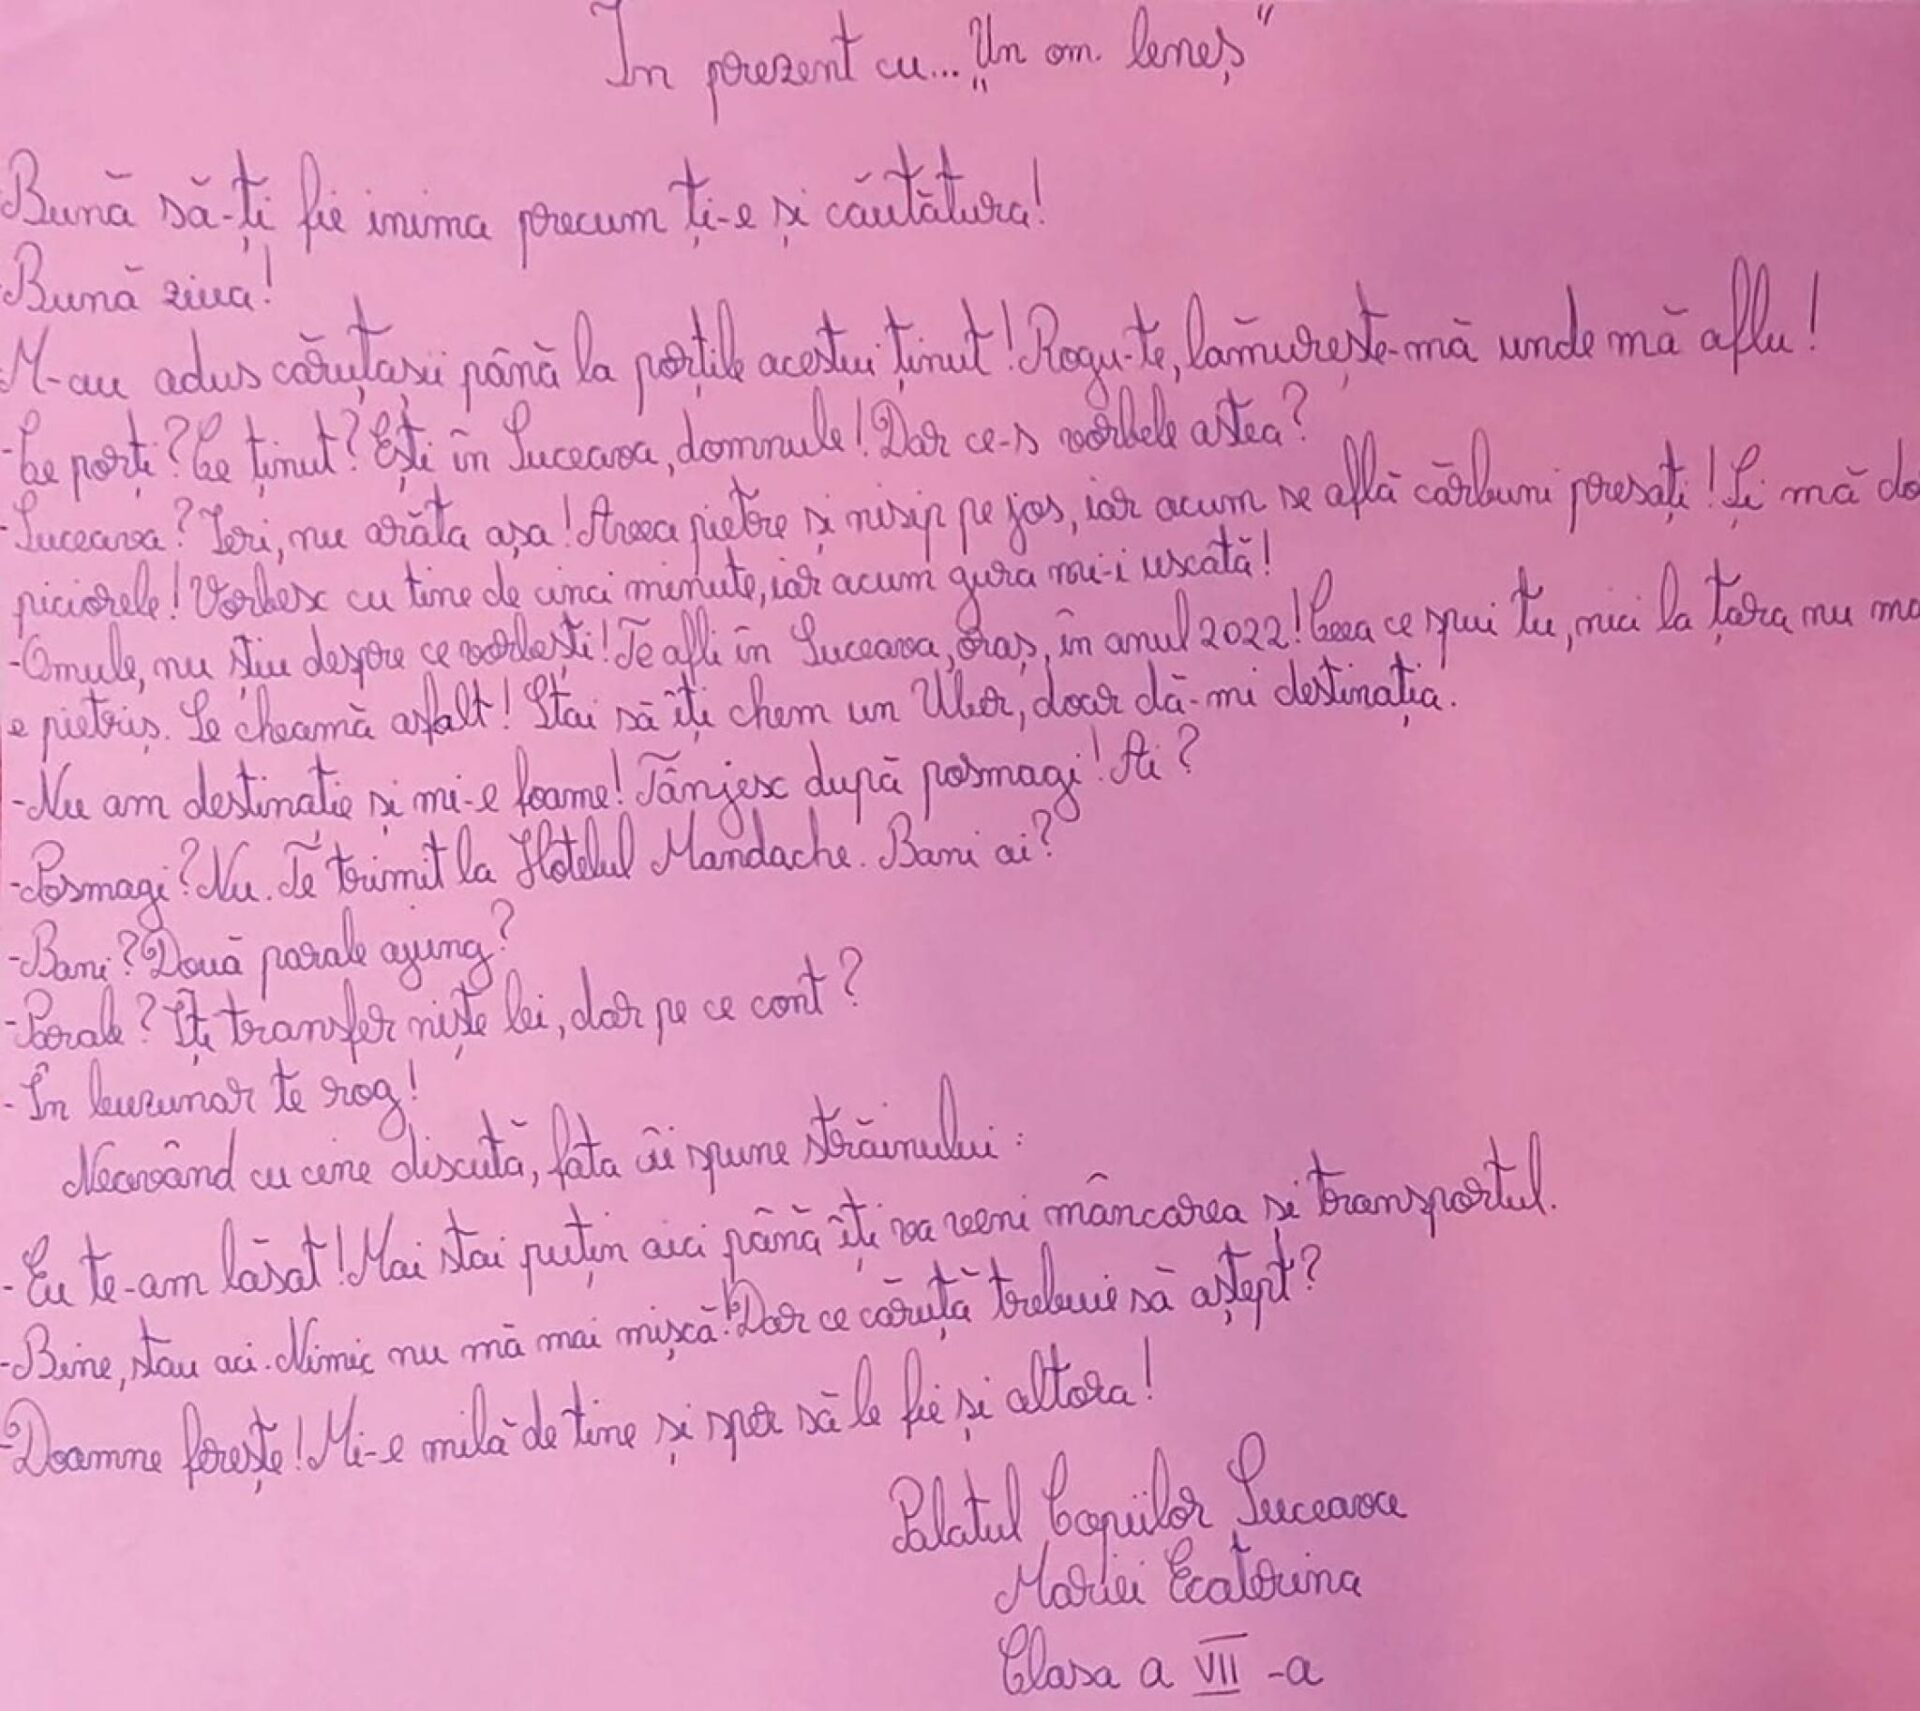 In prezent cu... „Un om leneș"
-Bună să-ți fie inima precum ți-e și căutătura!
-Bună ziua!
M-au adus căruțașii până la porțile acestui ținut! Rogu-te, lămurește-mă unde mă aflu!
-Ce porți? Ce ținut? Ești în Suceava, domnule! Dar ce-s vorbele astea?
-Suceava? Ieri, nu arăta așa! Avea pietre și nisip pe jos, iar acum se află cărbuni presați! Și mă do
piciorele! Vorbesc cu tine de cinci minute, iar acum gura mi-i uscată!
-Omule, nu știu despre ce vorbești! Te afli în Suceava, oraș, în anul 2022! Ceea ce spui tu, nici la țara nu ma
e pietriș. Se cheamă asfalt! Stai să îți chem un Uber, doar dă-mi destinația.
-Nu am destinatie și mi-e foame! Tânjesc după posmagi! Ai?
-Posmagi? Nu. Te trimit la Hotelul Mandache. Bani ai?
-Bani? Două parale ajung?
-Parale? Îți transfer niște lei, dar pe ce cont?
-În buzunar te rog!
Neavând cu cine discută, fata îi spune străinului:
-Eu te-am lăsat! Mai stai puțin aici până îți va veni mâncarea și transportul.
-Bine, stau aci. Nimic nu mă mai mișcă! Dar ce căruță trebuie să aștept?
-Doamne ferește! Mi-e milă de tine și sper să le fie și altora!
Palatul Copiilor Suceava
Mariei Ecaterina
Clasa a VII-a